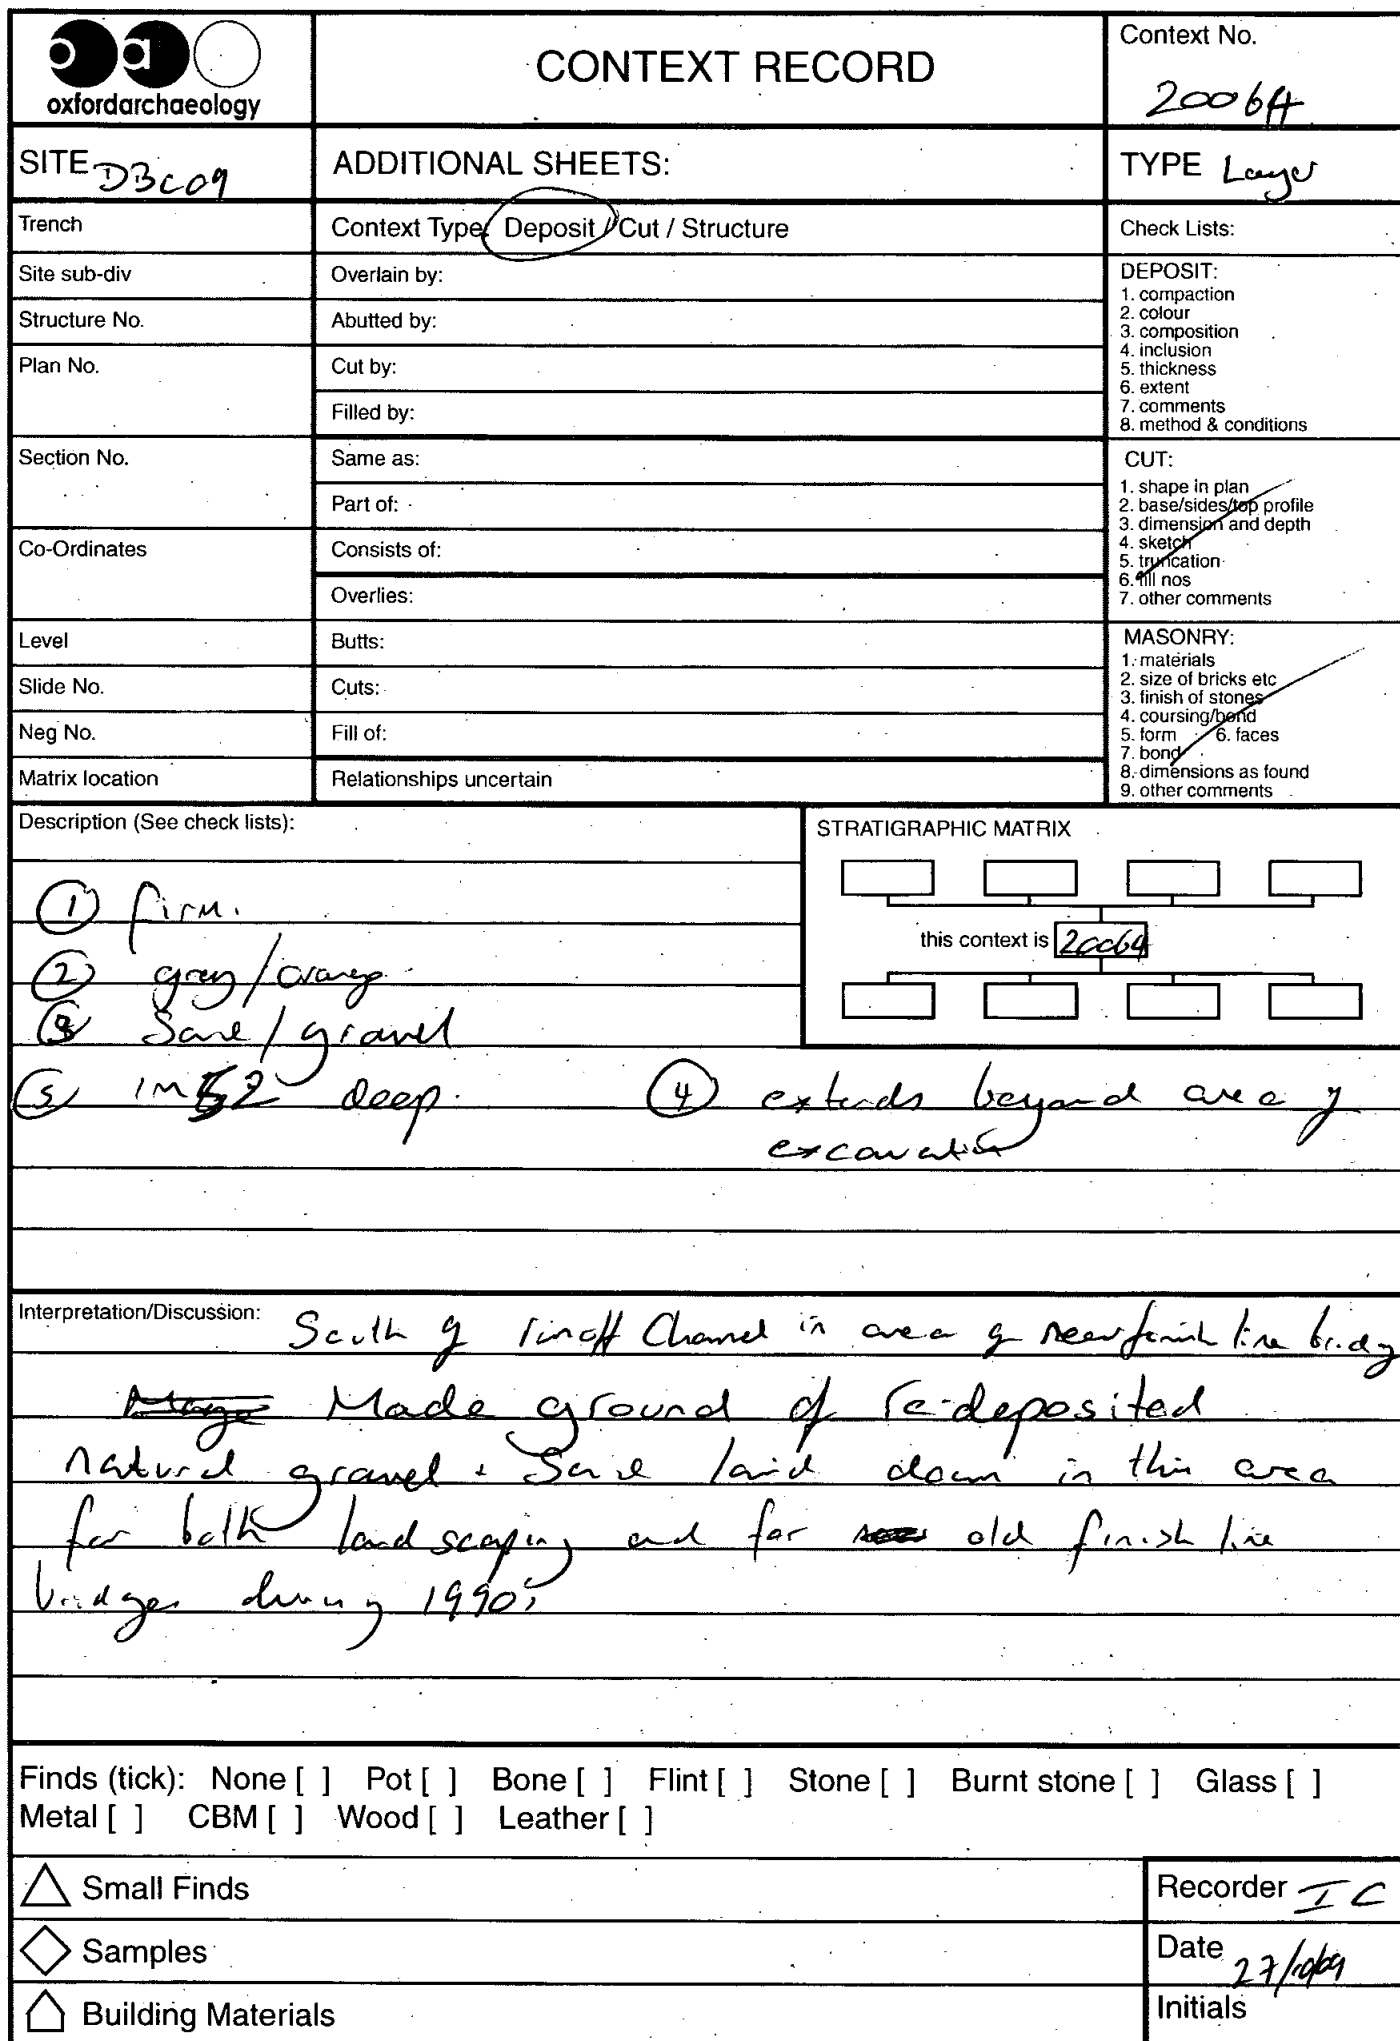 oxfordarchaeology
CONTEXT RECORD
Context No.
20064
SITE DBC09
ADDITIONAL SHEETS:
TYPE Layer
Trench
Context Type: Deposit / Cut / Structure
Check Lists:
Site sub-div
Overlain by:
Structure No.
Abutted by:
Plan No.
Cut by:
Filled by:
Section No.
Same as:
Part of:
Co-Ordinates
Consists of:
Overlies:
Level
Butts:
Slide No.
Cuts:
Neg No.
Fill of:
Matrix location
Relationships uncertain
DEPOSIT:
1. compaction
2. colour
3. composition
4. inclusion
5. thickness
6. extent
7. comments
8. method & conditions
CUT:
1. shape in plan
2. base/sides/top profile
3. dimension and depth
4. sketch
5. truncation
6. fill nos
7. other comments
MASONRY:
1. materials
2. size of bricks etc
3. finish of stones
4. coursing/bond
5. form 6. faces
7. bond
8. dimensions as found
9. other comments
Description (See check lists):
① firm.
② grey/orange
③ Sand/gravel
⑤ 1m52 deep. ④ extends beyond area of
excavation
STRATIGRAPHIC MATRIX
this context is 20064
Interpretation/Discussion: South of runoff Channel in area of new finish line bridge
Made ground of re-deposited
natural gravel + Sand laid down in this area
for both landscaping and for old finish line
bridges during 1990s
Finds (tick): None [ ] Pot [ ] Bone [ ] Flint [ ] Stone [ ] Burnt stone [ ] Glass [ ]
Metal [ ] CBM [ ] Wood [ ] Leather [ ]
Small Finds
Recorder IC
Samples
Date 27/10/09
Building Materials
Initials